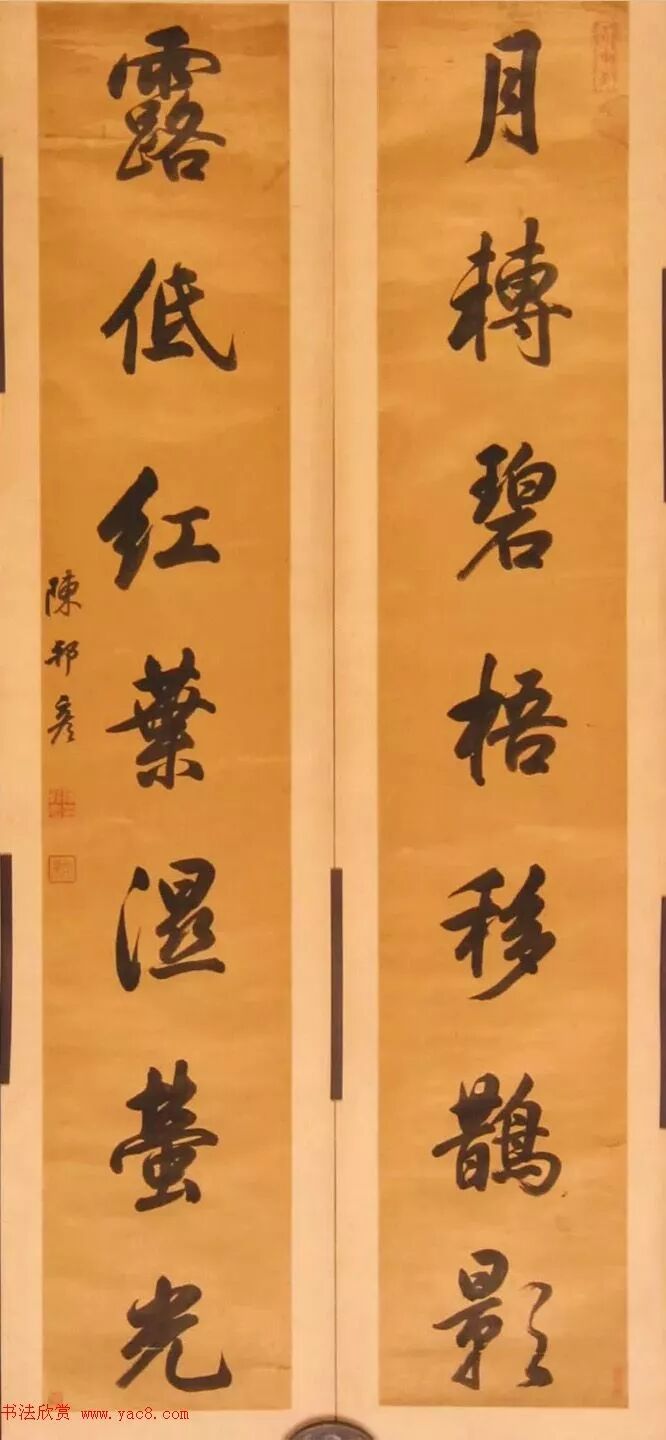 月轉碧梧移鵲影
露低红葉濕螢光
陳邦彦
书法欣赏 www.yac8.com